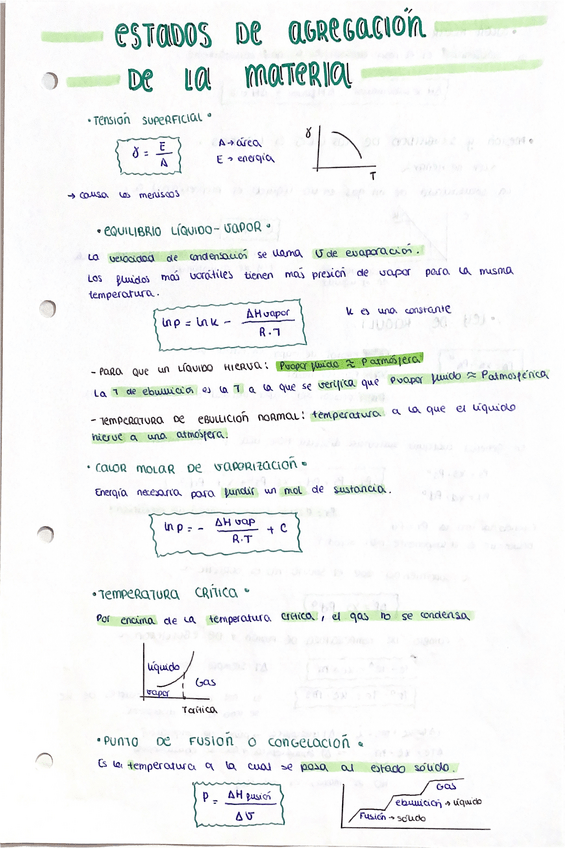 ESTADOS DE AGREGACIÓN
DE LA MATERIA
• TENSIÓN SUPERFICIAL •
γ = E / A
A → área
E → energía
γ
T
→ causa los meniscos
• EQUILIBRIO LÍQUIDO-VAPOR •
La velocidad de condensación se llama V de evaporación.
Los fluidos más volátiles tienen más presión de vapor para la misma
temperatura.
ln P = ln K - ΔHvapor / R·T
K es una constante
- PARA QUE UN LÍQUIDO HIERVA: Pvapor fluido ≈ Patmósfera
La T de ebullición es la T a la que se verifica que Pvapor fluido ≈ Patmosférica
- TEMPERATURA DE EBULLICIÓN NORMAL: temperatura a la que el líquido
hierve a una atmósfera.
• CALOR MOLAR DE VAPORIZACIÓN •
Energía necesaria para fundir un mol de sustancia.
ln P = - ΔHvap / R·T + C
• TEMPERATURA CRÍTICA •
Por encima de la temperatura crítica, el gas no se condensa
líquido
Gas
vapor
Tcrítica
• PUNTO DE FUSIÓN O CONGELACIÓN •
Es la temperatura a la cual se pasa al estado sólido.
P = ΔHfusión / ΔV
Gas
ebullición → líquido
Fusión → sólido